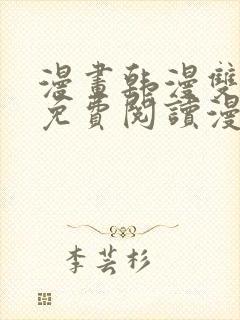 漫畫韩漫雙
免費閱讀漫
李芸杉